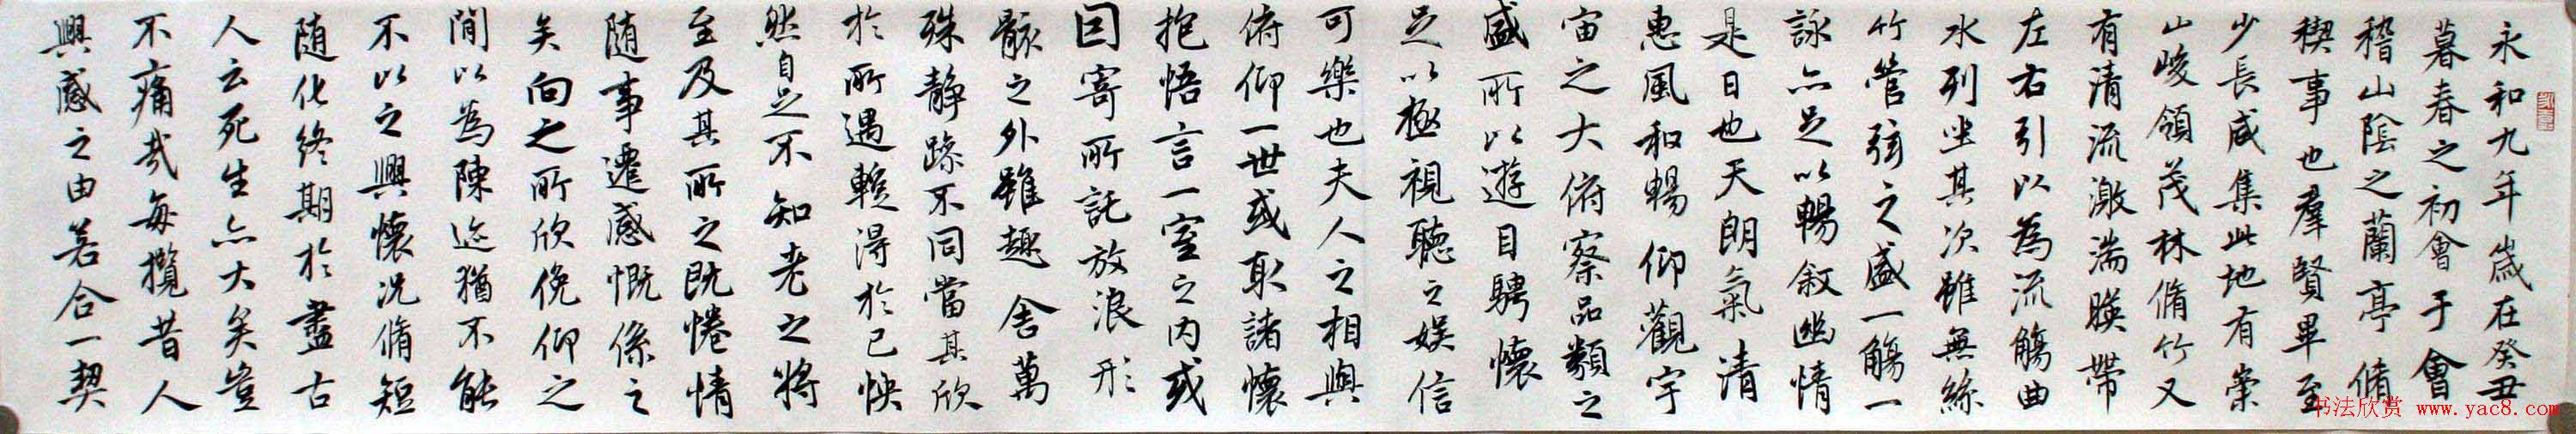 永和九年歲在癸丑
暮春之初會于會
稽山陰之蘭亭脩
稧事也羣賢畢至
少長咸集此地有崇
山峻領茂林脩竹又
有清流激湍暎帶
左右引以為流觴曲
水列坐其次雖無絲
竹管弦之盛一觴一
詠亦足以暢叙幽情
是日也天朗氣清
惠風和暢仰觀宇
宙之大俯察品類之
盛所以遊目騁懷
足以極視聽之娱信
可樂也夫人之相與
俯仰一世或取諸懷
抱悟言一室之内或
因寄所託放浪形
骸之外雖趣舍萬
殊静躁不同當其欣
於所遇蹔得於己怏
然自足不知老之將
至及其所之既惓情
随事遷感慨係之
矣向之所欣俛仰之
閒以為陳迹猶不能
不以之興懷况脩短
随化終期於盡古
人云死生亦大矣豈
不痛哉每攬昔人
興感之由若合一契
书法欣赏 www.yac8.com